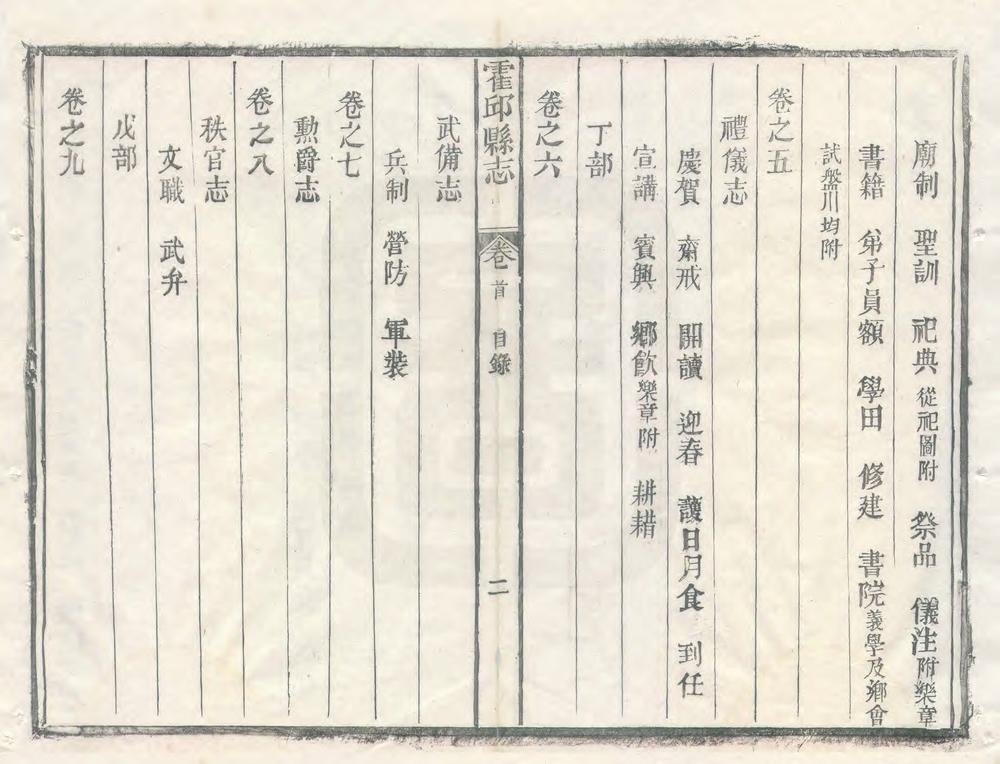 廟制　聖訓　祀典從祀圖附　祭品　儀注附樂章
書籍　弟子員額　學田　修建　書院義學及鄉會
試盤川均附
卷之五
禮儀志
慶賀　齋戒　開讀　迎春　護日月食　到任
宣講　賓興　鄉飲樂章附　耕耤
丁部
卷之六
霍邱縣志　卷首　目錄　二
武備志
兵制　營防　軍裝
卷之七
勲爵志
卷之八
秩官志
文職　武弁
戊部
卷之九